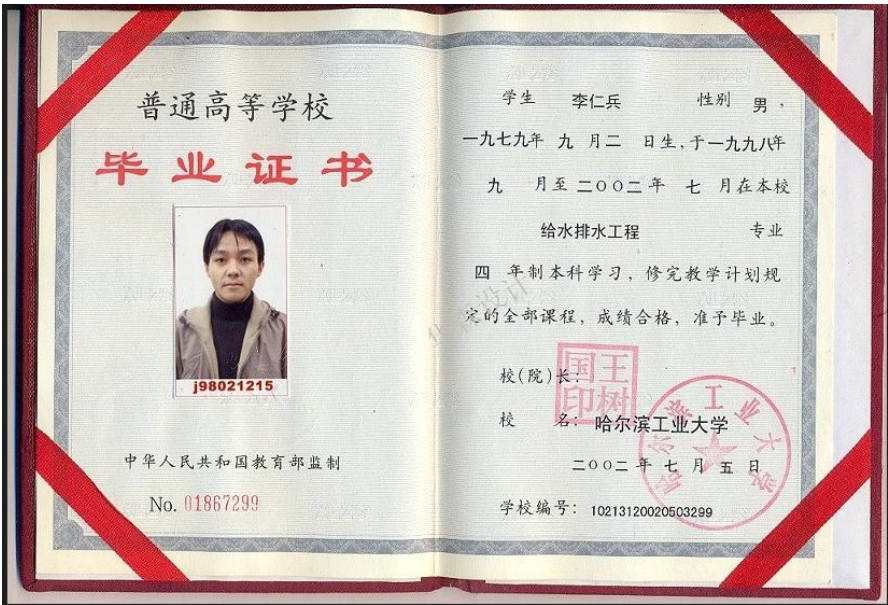 普通高等学校
毕业证书
j98021215
中华人民共和国教育部监制
No. 01867299
学生 李仁兵 性别 男，
一九七九年 九 月二 日生，于一九九八年
九 月至 二〇〇二 年 七 月在本校
给水排水工程 专业
四 年制本科学习，修完教学计划规
定的全部课程，成绩合格，准予毕业。
校（院）长：
国王
印树
校 名：哈尔滨工业大学
哈尔滨工业大学
二〇〇二 年 七 月 五 日
学校编号：10213120020503299